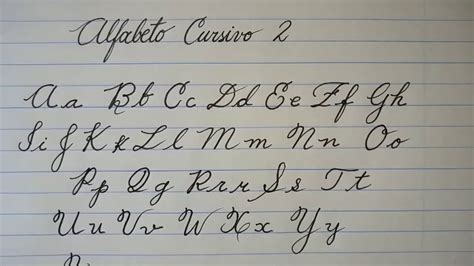 Alfabeto Cursivo 2
Aa Bb Cc Dd Ee Ff Gh
Ii J Kk Ll Mm Nn Oo
Pp Qg Rrr Ss Tt
Uu Vv W Xx Yy